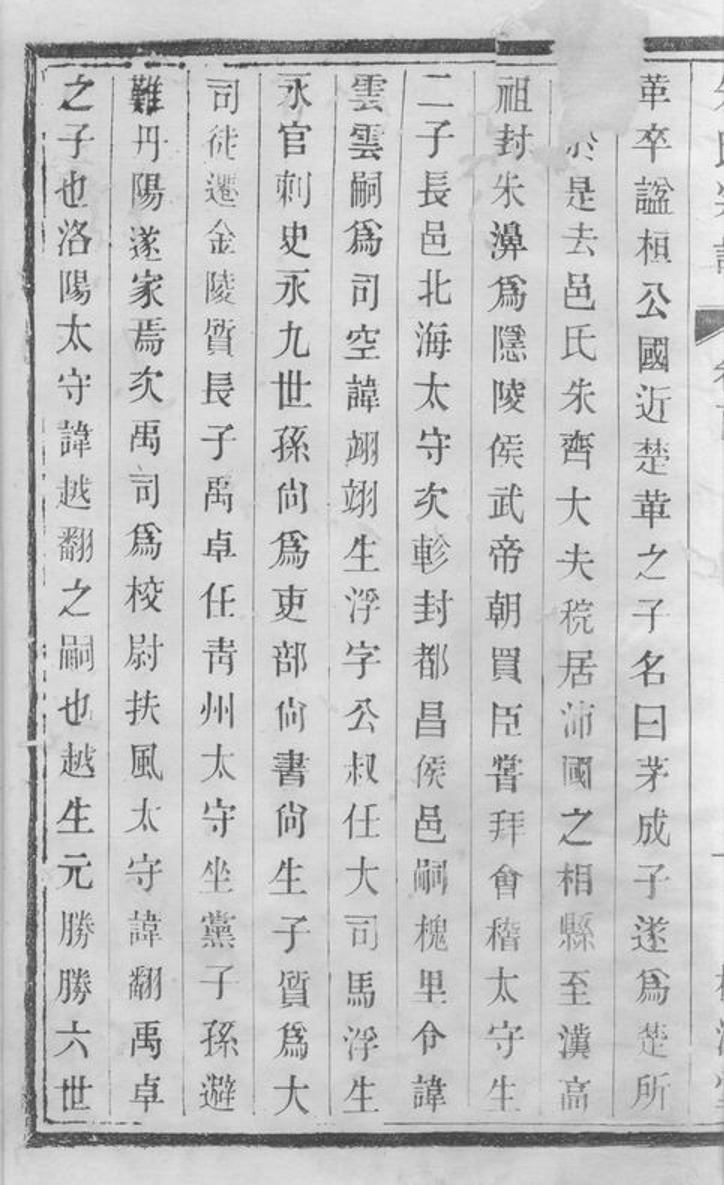 革卒諡桓公國近楚華之子名曰茅成子遂為楚所
於是去邑氏朱齊大夫稅居沛國之相縣至漢高
祖封朱濞為隱陵侯武帝朝買臣嘗拜會稽太守生
二子長邑北海太守次軫封都昌侯邑嗣槐里令諱
雲雲嗣為司空諱翊翊生浮字公叔任大司馬浮生
永官刺史永九世孫尙為吏部尙書尙生子質為大
司徒遷金陵質長子禹卓任靑州太守坐黨子孫避
難丹陽遂家焉次禹司為校尉扶風太守諱翻禹卓
之子也洛陽太守諱越翻之嗣也越生元勝勝六世